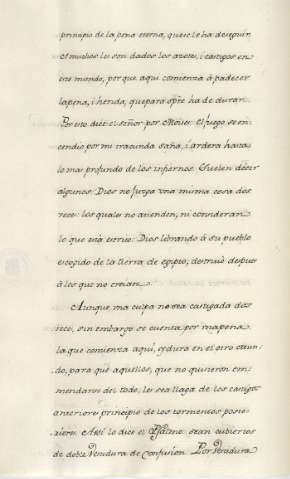 principio de la pena eterna, que se le ha de seguir.
A muchos les son dados los azotes, i castigos en
este mundo, por que aqui comienza à padecer
la pena, i herida, que para spre ha de durar.
Por esto dice el señor por Moises: El fuego se en-
cendio por mi iracunda saña, i ardera hasta
lo mas profundo de los infiernos. Suelen decir
algunos: Dios no juzga una misma cosa dos
veces: los quales no atienden, ni consideran
lo que está escrito: Dios librando à su pueblo
escogido de la tierra de egipto, destruió despues
à los que no creieron.
Aunque una culpa no sea castigada dos
veces, sin embargo se cuenta por una pena
la que comienza aqui, y dura en el otro mun-
do, para que aquellos, que no quisieron en-
mendarse del todo, les sea llaga de los castigos
anteriores principio de los tormentos poste-
riores. Asi lo dice el Psalmo: sean cubiertos
de doble Vestidura de confusion. Por Vestidura